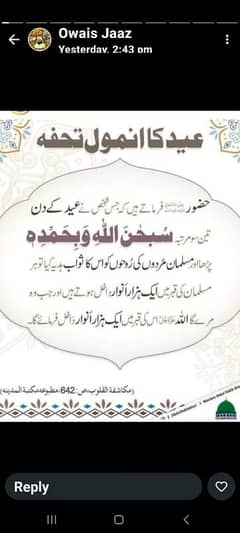 Owais Jaaz
Yesterday, 2:43 pm
عید کا انمول تحفہ
حضور ﷺ فرماتے ہیں کہ جس شخص نے عید کے دن
تین سو مرتبہ سُبْحٰنَ اللّٰهِ وَبِحَمْدِهٖ
پڑھا اور مسلمان مُردوں کی رُوحوں کو اس کا ثواب ہدیہ کیا تو ہر
مسلمان کی قبر میں ایک ہزار اَنوار داخل ہوتے ہیں اور جب وہ
مرے گا اللہ اس کی قبر میں ایک ہزار اَنوار داخل فرمائے گا۔
(مکاشفۃ القلوب، ص:642، مطبوعہ مکتبۃ المدینہ)
Reply